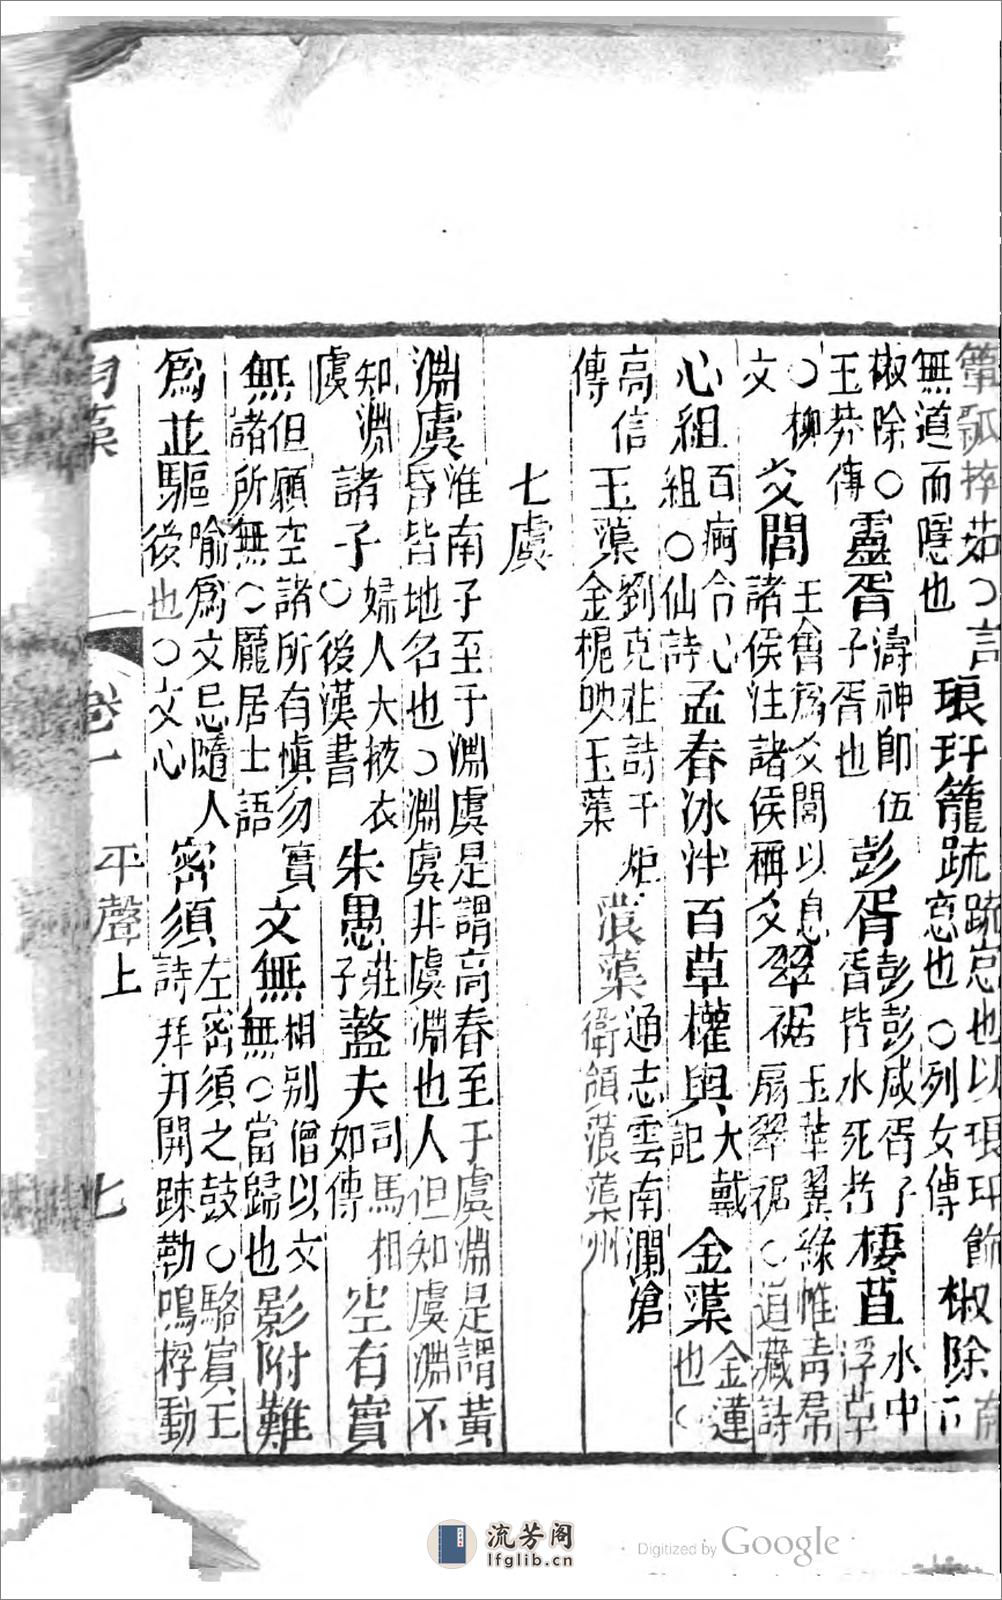 簞瓢捽茹〇言無道而隱也琅玕籠疏疏窓也以琅玕飾窓也〇列女傳椒除南下
椒除〇玉莽傳靈胥濤神卽伍子胥也彭胥彭彭咸胥子胥皆水死者棲苴水中浮草
〇柳文爻閭王會爲爻閭以息諸侯注諸侯稱爻翠裾玉華翼綠帷靑羣扇翠裾〇道藏詩
心組百痾令心組〇仙詩孟春冰泮百草權輿大戴記金蕖金蓮也〇
高信傳玉蕖劉克莊詩千炬金梔映玉蕖蒗蕖通志雲南瀾滄衛領蒗蕖州
七虞
淵虞淮南子至于淵虞是謂高舂至于虞淵是謂黃昏皆地名也〇淵虞非虞淵也人但知虞淵不
知淵虞諸于婦人大掖衣〇後漢書朱愚莊子盭夫司馬相如傳空有實
無但願空諸所有愼勿實諸所無〇龐居士語文無相別僧以文無〇當歸也影附難
爲並驅喻爲文忌隨人後也〇文心密須左密須之鼓〇駱賓王詩拜井開踈勒鳴桴動
卷一 平聲上 七
流芳阁
lfglib.cn
Digitized by Google